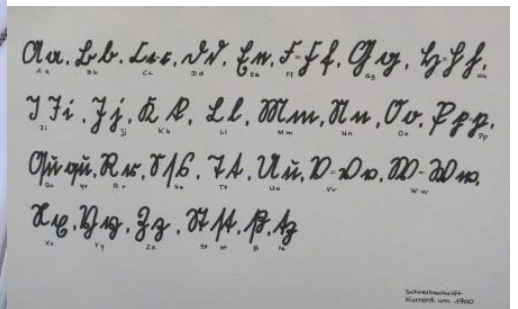 Aa, Bb, Ccc, Dd, Ee, F=Ff, Gg, H=Hh,
Aa Bb Cc Dd Ee Ff Gg Hh
I Ii, Jj, Kk, Ll, Mm, Nn, Oo, Ppp,
Ii Jj Kk Ll Mm Nn Oo Pp
Qu qu, Rr, Sſs, Tt, Uu, V=Vv, W-Ww,
Qu qu Rr Ss Tt Uu Vv Ww
Xx, Yy, Zz, St ſt, ß, tz
Xx Yy Zz St st ß tz
Schreibschrift
Kurrent um 1900